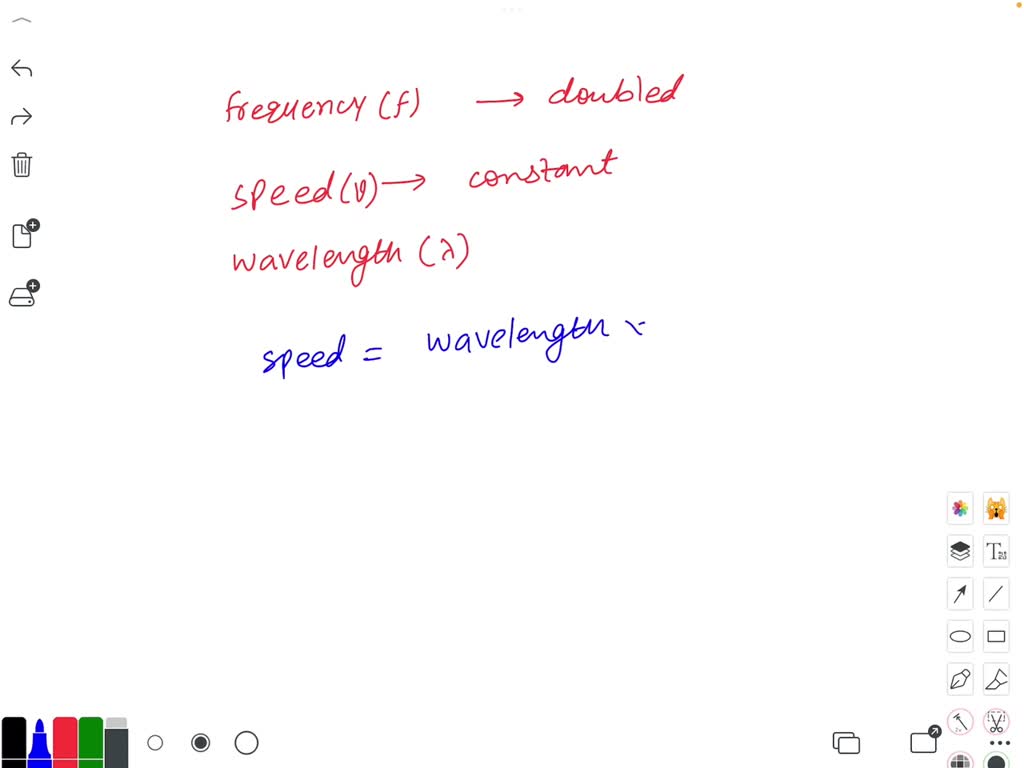 frequency (f) → doubled
speed (v) → constant
wavelength (λ)
speed = wavelength ×